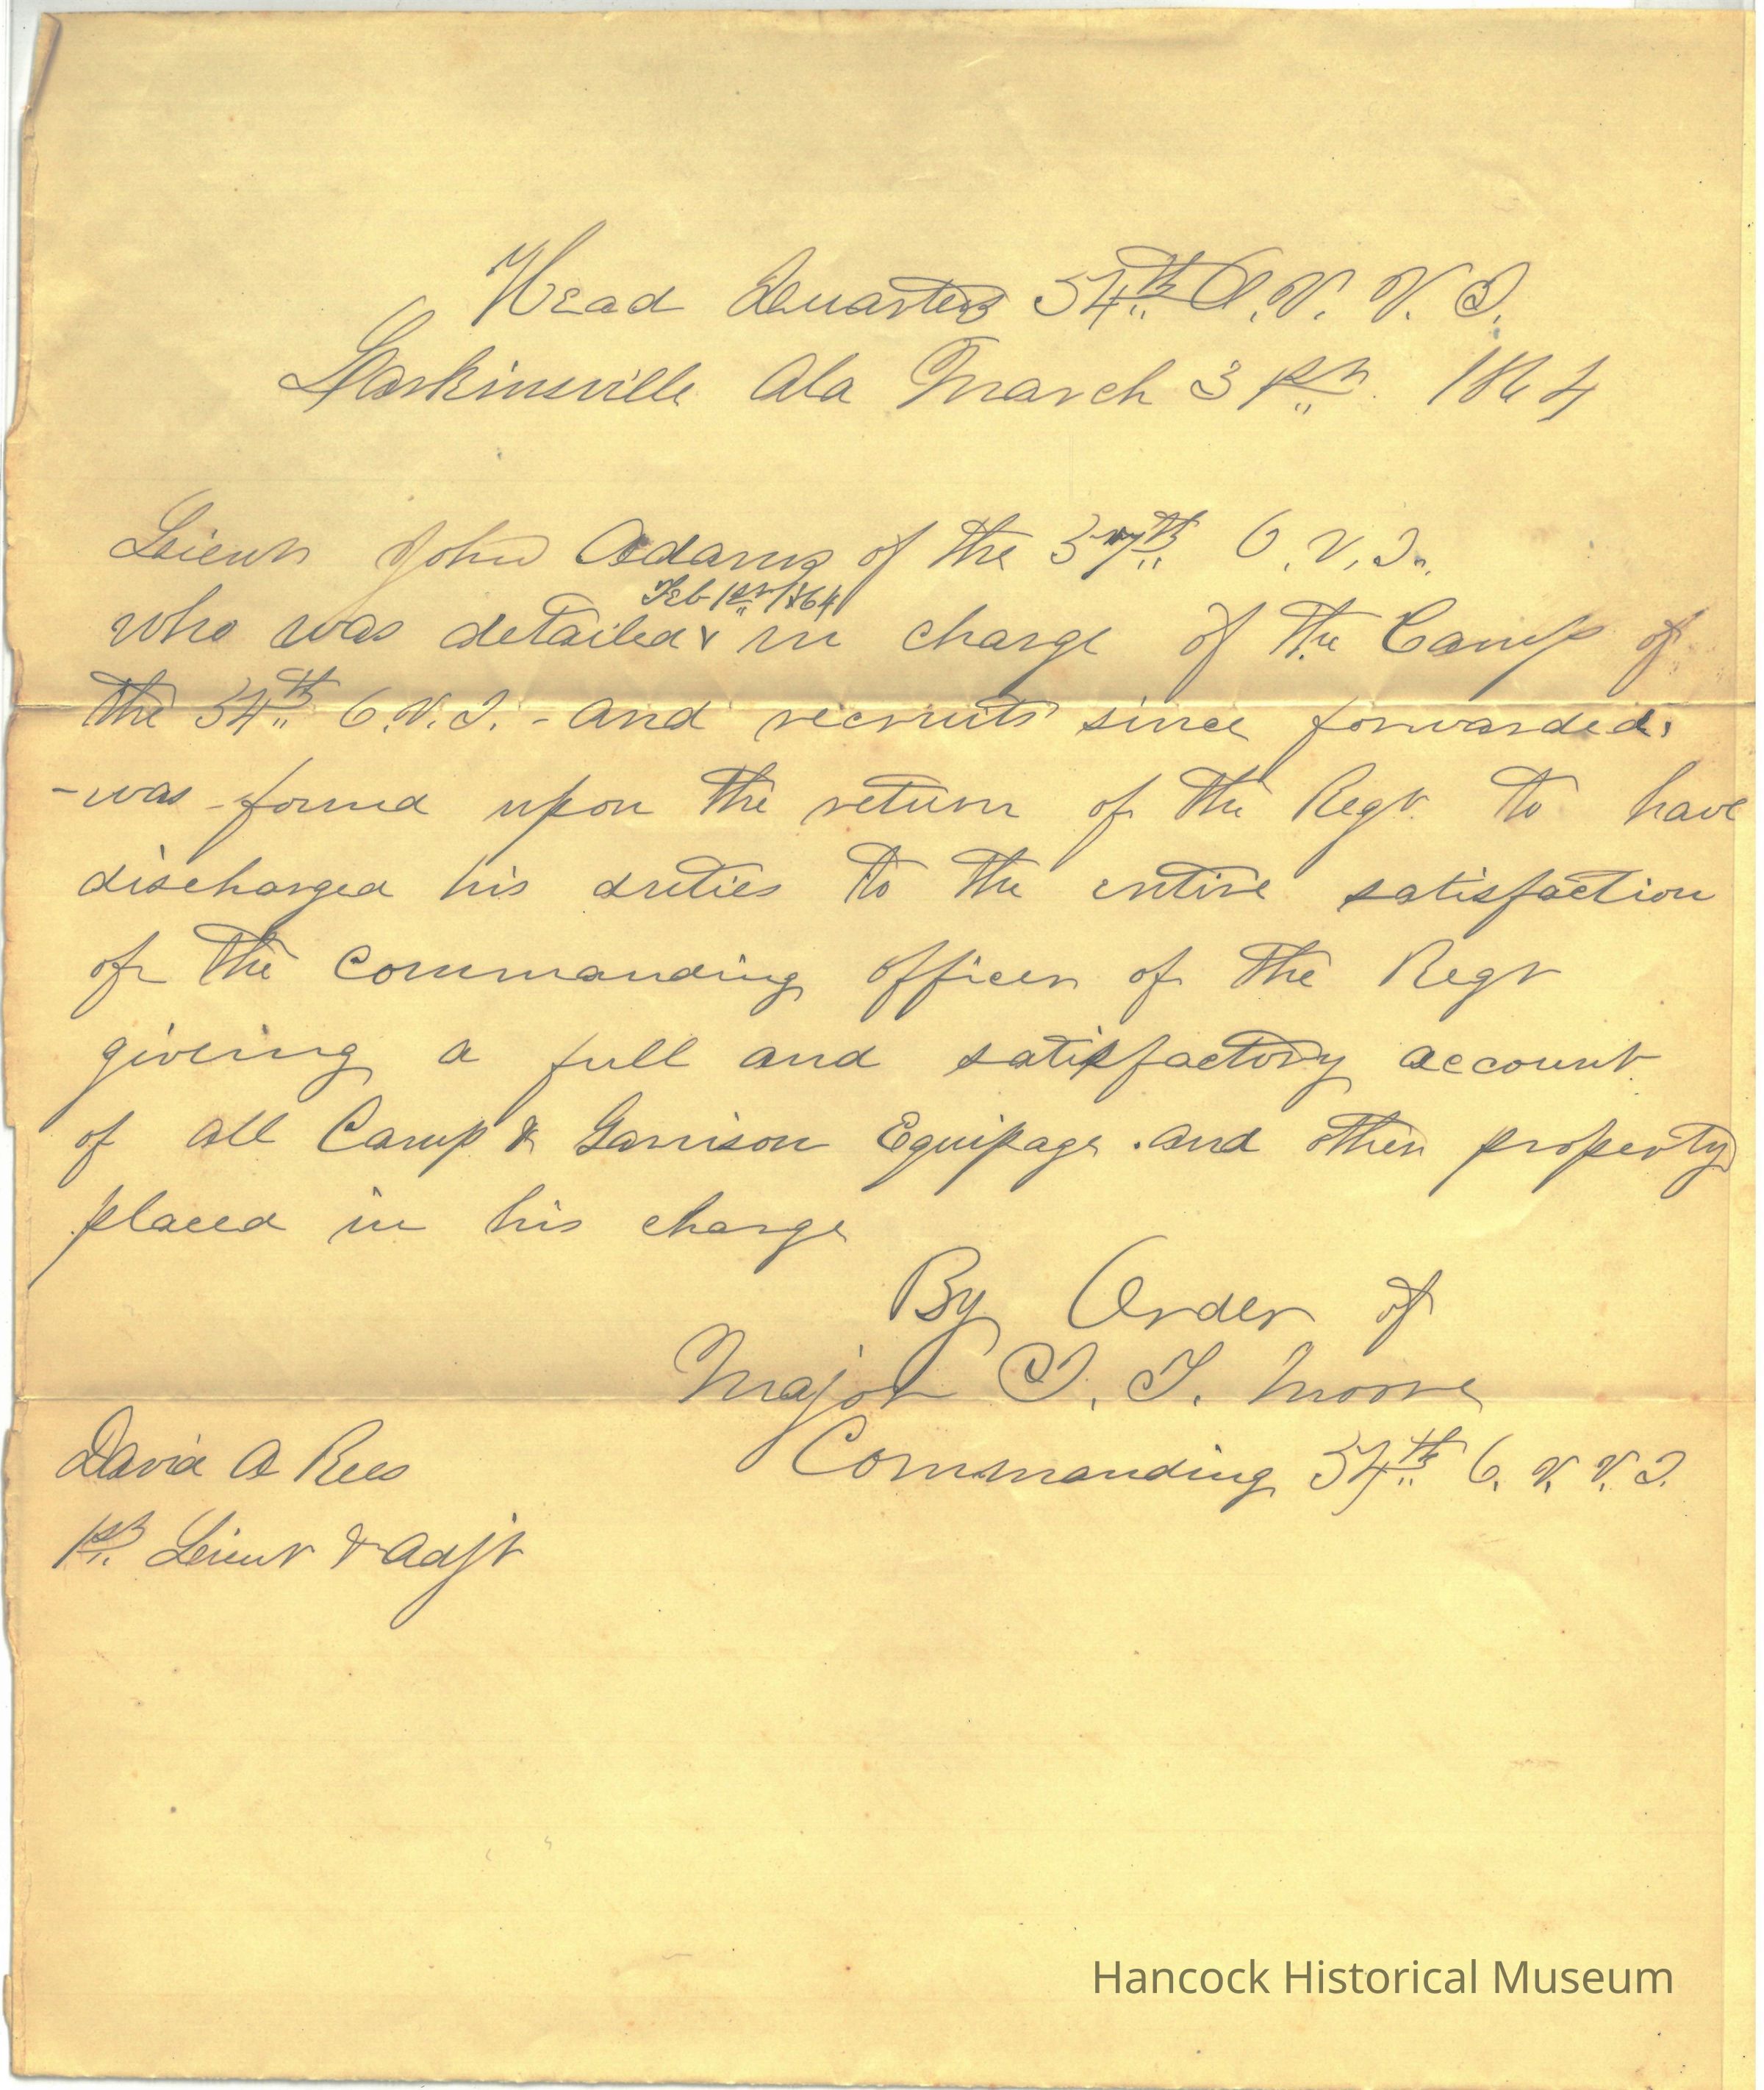 Head Quarters 54th O. V. V. I.
Larkinsville Ala March 31st 1864
Lieut John Adams of the 37th O. V. I.
Feb 1st 1864
who was detailed in charge of the Camp of
the 54th O. V. I. - and recruits since forwarded,
- was found upon the return of the Regt to have
discharged his duties to the entire satisfaction
of the commanding officer of the Regt
giveing a full and satisfactory account
of all Camp & Garrison Equipage and other property
placed in his charge
By Order of
Major I. T. Moore
Commanding 54th O. V. V. I.
David A Rees
1st Lieut & Adjt
Hancock Historical Museum